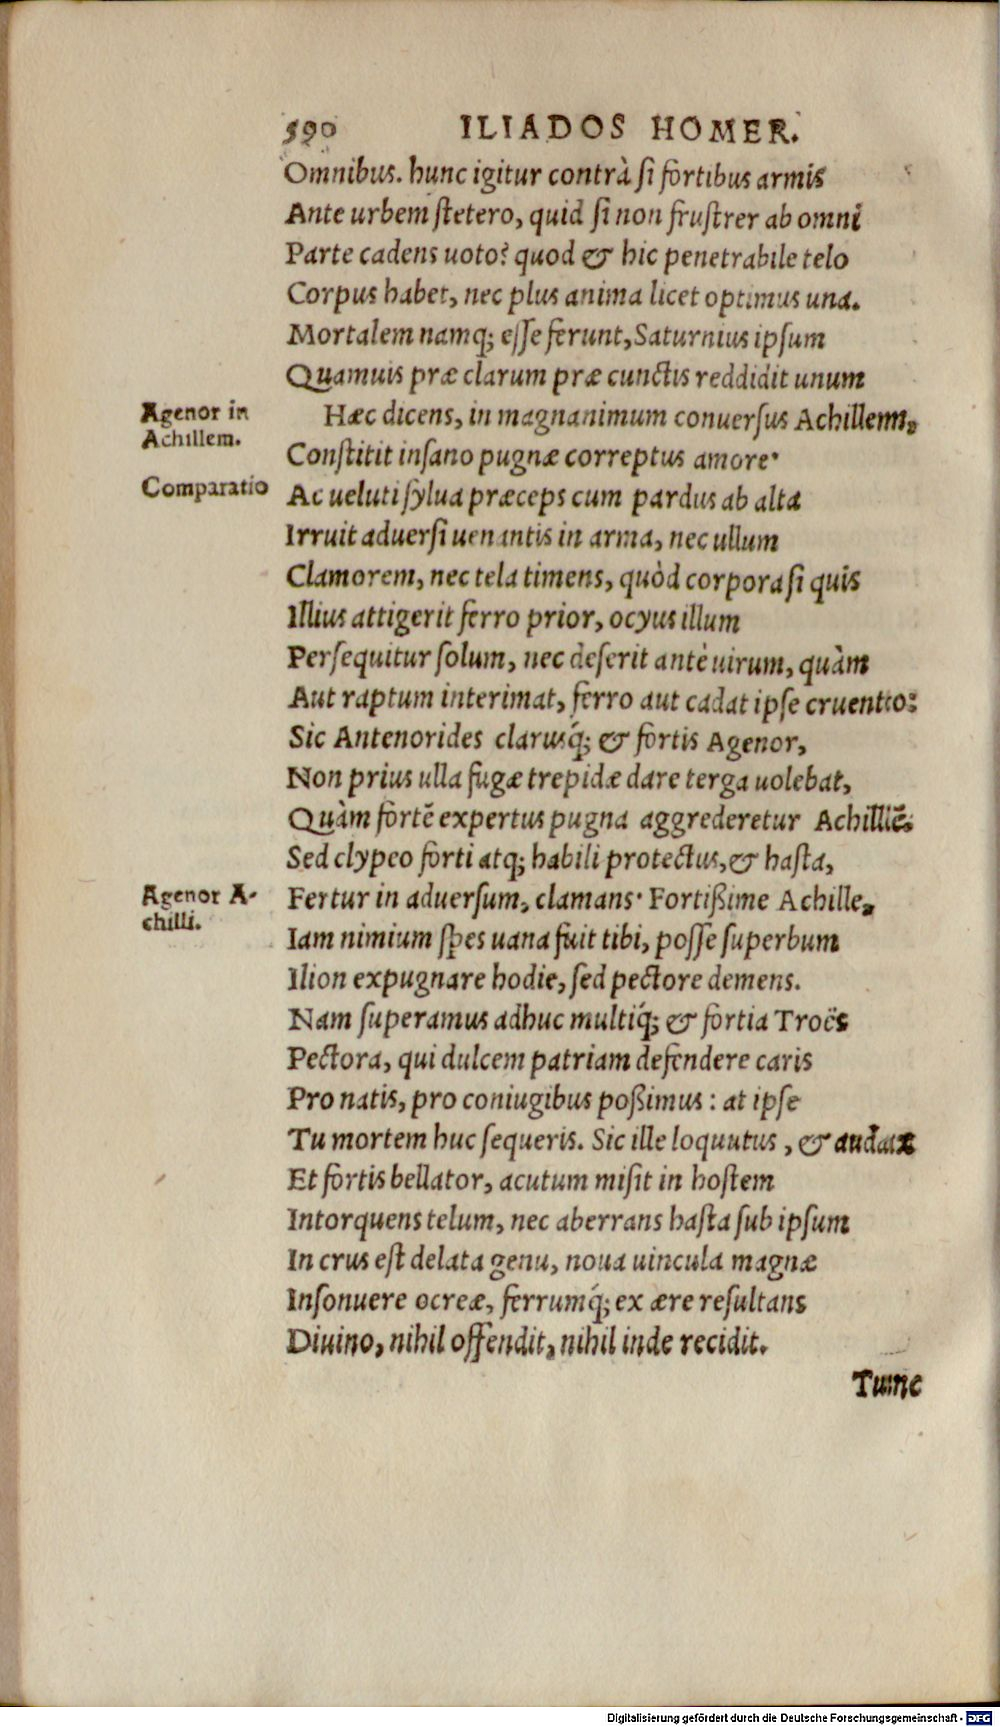 590 ILIADOS HOMER.
Omnibus. hunc igitur contrà si fortibus armis
Ante urbem stetero, quid si non frustrer ab omni
Parte cadens uoto? quod & hic penetrabile telo
Corpus habet, nec plus anima licet optimus una.
Mortalem namq; esse ferunt, Saturnius ipsum
Quamuis præ clarum præ cunctis reddidit unum
Agenor in
Achillem.
Hæc dicens, in magnanimum conuersus Achillem,
Constitit insano pugnæ correptus amore.
Comparatio
Ac ueluti sylua præceps cum pardus ab alta
Irruit aduersi uenantis in arma, nec ullum
Clamorem, nec tela timens, quòd corpora si quis
Illius attigerit ferro prior, ocyus illum
Persequitur solum, nec deserit antè uirum, quàm
Aut raptum interimat, ferro aut cadat ipse cruento:
Sic Antenorides clarusq́; & fortis Agenor,
Non prius ulla fugæ trepidæ dare terga uolebat,
Quàm fortē expertus pugna aggrederetur Achillē.
Sed clypeo forti atq; habili protectus, & hasta,
Agenor A-
chilli.
Fertur in aduersum, clamans. Fortißime Achille,
Iam nimium spes uana fuit tibi, posse superbum
Ilion expugnare hodie, sed pectore demens.
Nam superamus adhuc multiq́; & fortia Troës
Pectora, qui dulcem patriam defendere caris
Pro natis, pro coniugibus poßimus: at ipse
Tu mortem huc sequeris. Sic ille loquutus, & audax
Et fortis bellator, acutum misit in hostem
Intorquens telum, nec aberrans hasta sub ipsum
In crus est delata genu, noua uincula magnæ
Insonuere ocreæ, ferrumq́; ex ære resultans
Diuino, nihil offendit, nihil inde recidit.
Tunc
Digitalisierung gefördert durch die Deutsche Forschungsgemeinschaft - DFG